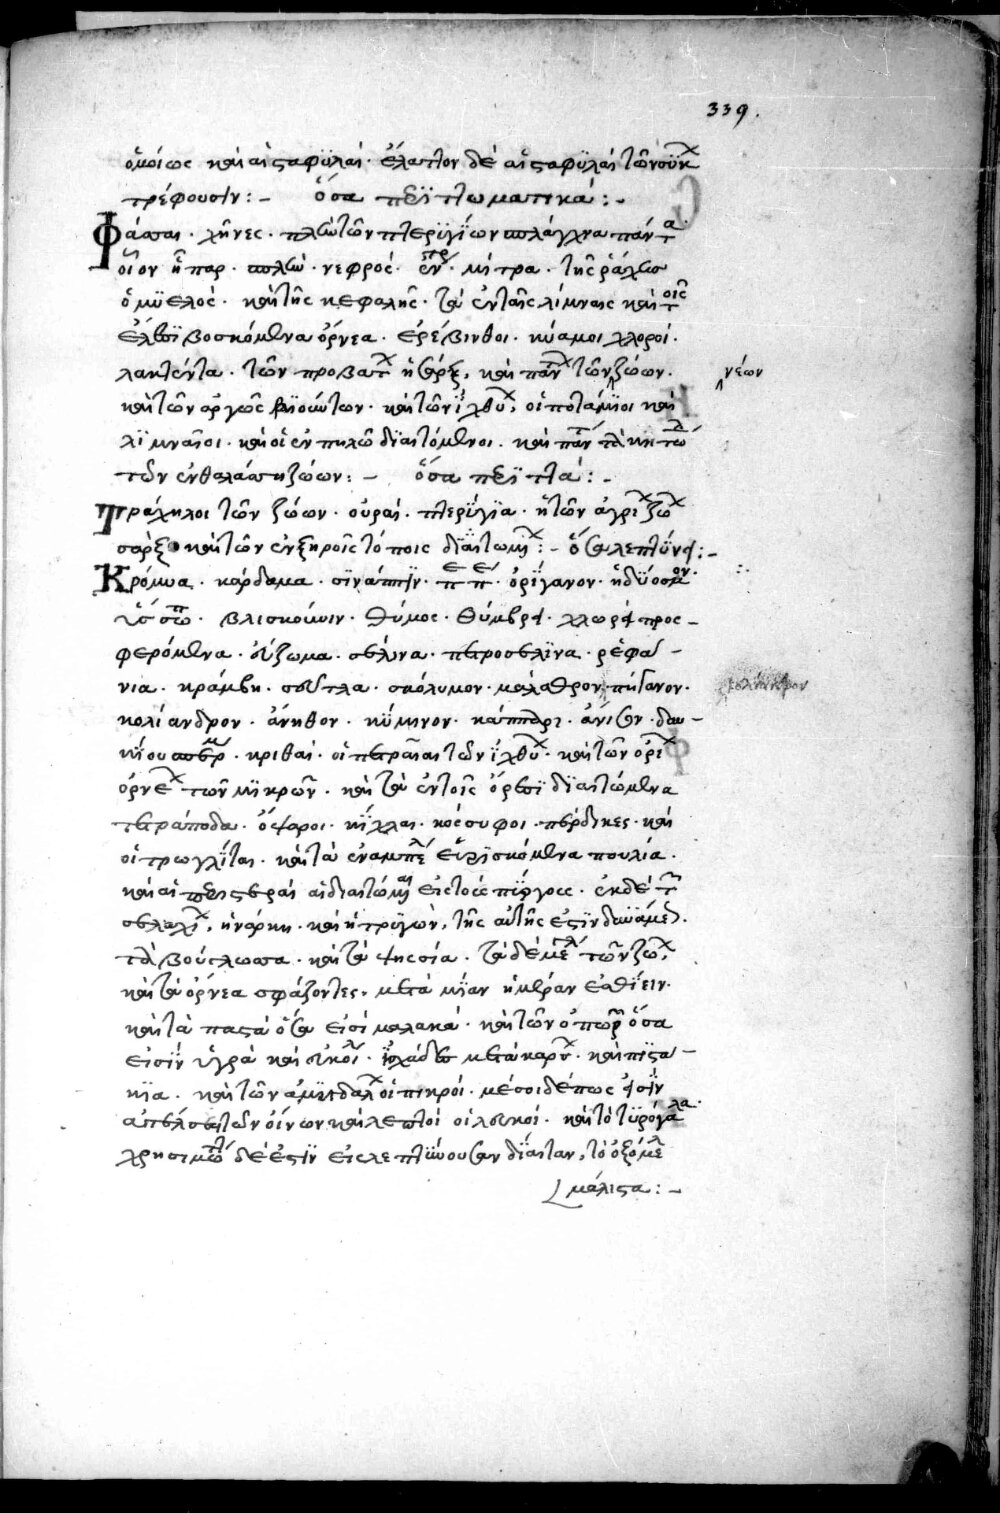 339.
ὁμοίως καὶ αἱ σταφϋλαί· ἔλαττον δὲ αἱ σταφϋλαὶ τῶν σύκ
τρέφουσιν :– ὅσα περιττωματικά :–
Φάσσαι · χῆνες · πλὴν τῶν πτερϋγίων σπλάγχνα πάντα·
οἷον ἧπαρ · σπλὴν · νεφρός · μίτρα · τῆς ῥάχεως
ὁ μϋελος · καὶ τῆς κεφαλῆς · τὰ ἐν ταῖς λίμναις καὶ τοῖς
ἕλεσϊ βοσκόμενα ὄρνεα · ἐρέβινθοι · κύαμοι χλοροί ·
τῶν προβατ ἡ σάρξ, καὶ πάντ τῶν ζώων ·
νέων
καὶ τῶν ἀργῶς βϊούντων · καὶ τῶν ἰχθυ, οἱ ποτάμϊοι καὶ
λϊμναῖοι · καὶ οἱ ἐν πηλῶ δϊαιτόμενοι · καὶ πάντ τὰ κητώ
τῶν ἐν θαλάσση ζώων :– ὅσα περιττά :–
Τράχηλοι τῶν ζώων · οὐραί · πτερύγϊα · ἡ τῶν ἀγρί ζώ
σαρξ · καὶ τῶν ἐν ξηροῖς τόποις δϊαιτωμ :– ὅσα λεπτύνει :–
Κρόμυα · κάρδαμα · σϊνάπιν · πέπε · ὀρίγανον · ἡδύοσμον·
ὕσσωπ · βλισκούνιν · θύμος · θύμβρη · χλωρὰ προς–
φερόμενα · εὔζωμα · σέλινα · πετροσέλϊνα · ῥεφά–
νια · κράμβη · σεῦτλα · σκόλυμον · μάλαθρον · πήγανον ·
κολίανδρον · ἄνηθον · κύμινον · κάππαρι · ἄνισον · δαυ–
κίου σπέρμ · κριθαί · οἱ πετραῖαι τῶν ἰχθύ · καὶ τῶν ὀρι
ὀρνέ τῶν μϊκρῶν · καὶ τὰ ἐν τοῖς ὄρεσϊ δϊαιτώμενα
τετράποδα · ὄψαροι · κίχλαι · κόσσυφοι · πέρδικες · καὶ
οἱ τρωγλῖται · καὶ τὰ ἐν ἀμπέλ εὑρισκόμενα πουλία ·
καὶ αἱ περιστεραὶ αἱ διαιτώμ εἰς τοὺς πύργους · ἐκ δὲ τῶν
σελαχί, ἡ νάρκη · καὶ ἡ τρϋγών, τῆς αὐτῆς ἐστϊν δυνάμε.
τὰ βούγλωσσα · καὶ τὰ ψησία · τὰ δὲ μεγά τῶν ζώ,
καὶ τὰ ὄρνεα σφάζοντες, μετὰ μΐαν ἡμέραν ἐσθΐειν·
καὶ τὰ παστὰ ὅσα εἰσὶ μαλακά · καὶ τῶν ὀπωρ ὅσα
εἰσϊν ὑγρὰ καὶ · ἰσχάδες μετὰ καρύ · καὶ πϊστά–
κϊα · καὶ τῶν ἀμϋγδαλ οἱ πικροί · μέσοι δέ πως εἰσϊν
τῶν οἴνων καὶ λεπτοὶ οἱ λευκοί · καὶ τὸ τϋρόγαλα·
χρησιμώτ δέ ἐστϊν εἰς λεπτύνουσαν δίαιταν, τὸ ὀξόμελ
μάλιστα :–